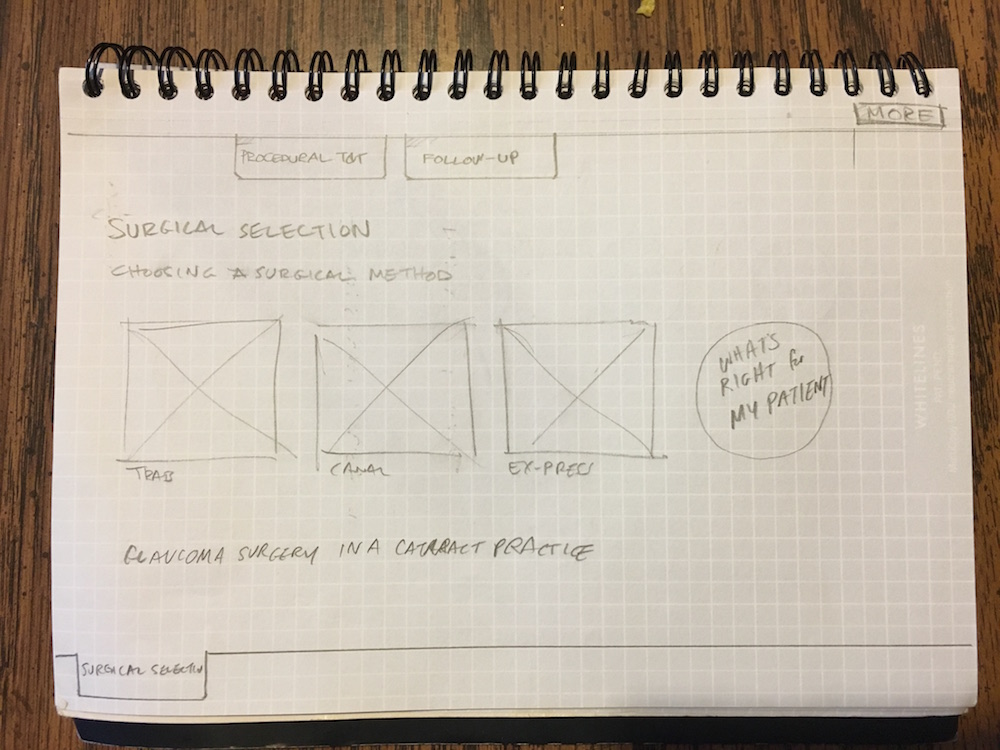 MORE
PROCEDURAL TGT
FOLLOW-UP
SURGICAL SELECTION
CHOOSING A SURGICAL METHOD
WHAT'S
RIGHT for
MY PATIENT
TRAB
CANAL
EX-PRESS
GLAUCOMA SURGERY IN A CATARACT PRACTICE
SURGICAL SELECTION
WHITELINES